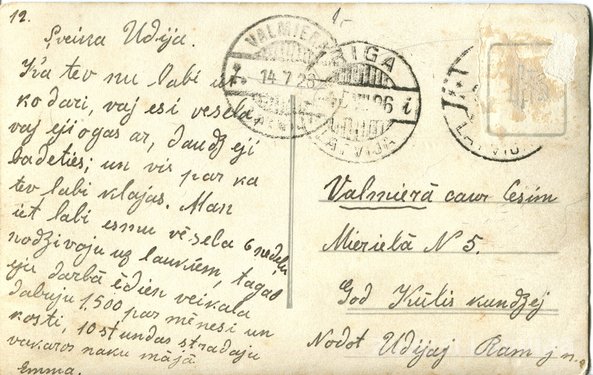 12.
Sveika Udija.
Ka tev nu labi it
ko dari, vaj esi vesela
vaj eji ogas ar, daudz eji
badeties; un vis par ka
tev labi klajas. Man
iet labi esmu vesela 6 nedeļu
nodzivaju uz laukiem, tagad
eju darbā ēdien veikala
dabuju 1.500 par mēnesi un
kosti, 10 stundas stradaju
vakaros naku mājā.
Emma.
VALMIERA
14.7.26
LATVIJA
RIGA
26
LATVIJA
LATVIJA
Valmierā caur Cesim
Mierielā N 5.
God Kūlis kundzej
Nodot Udijaj Ram j.n.